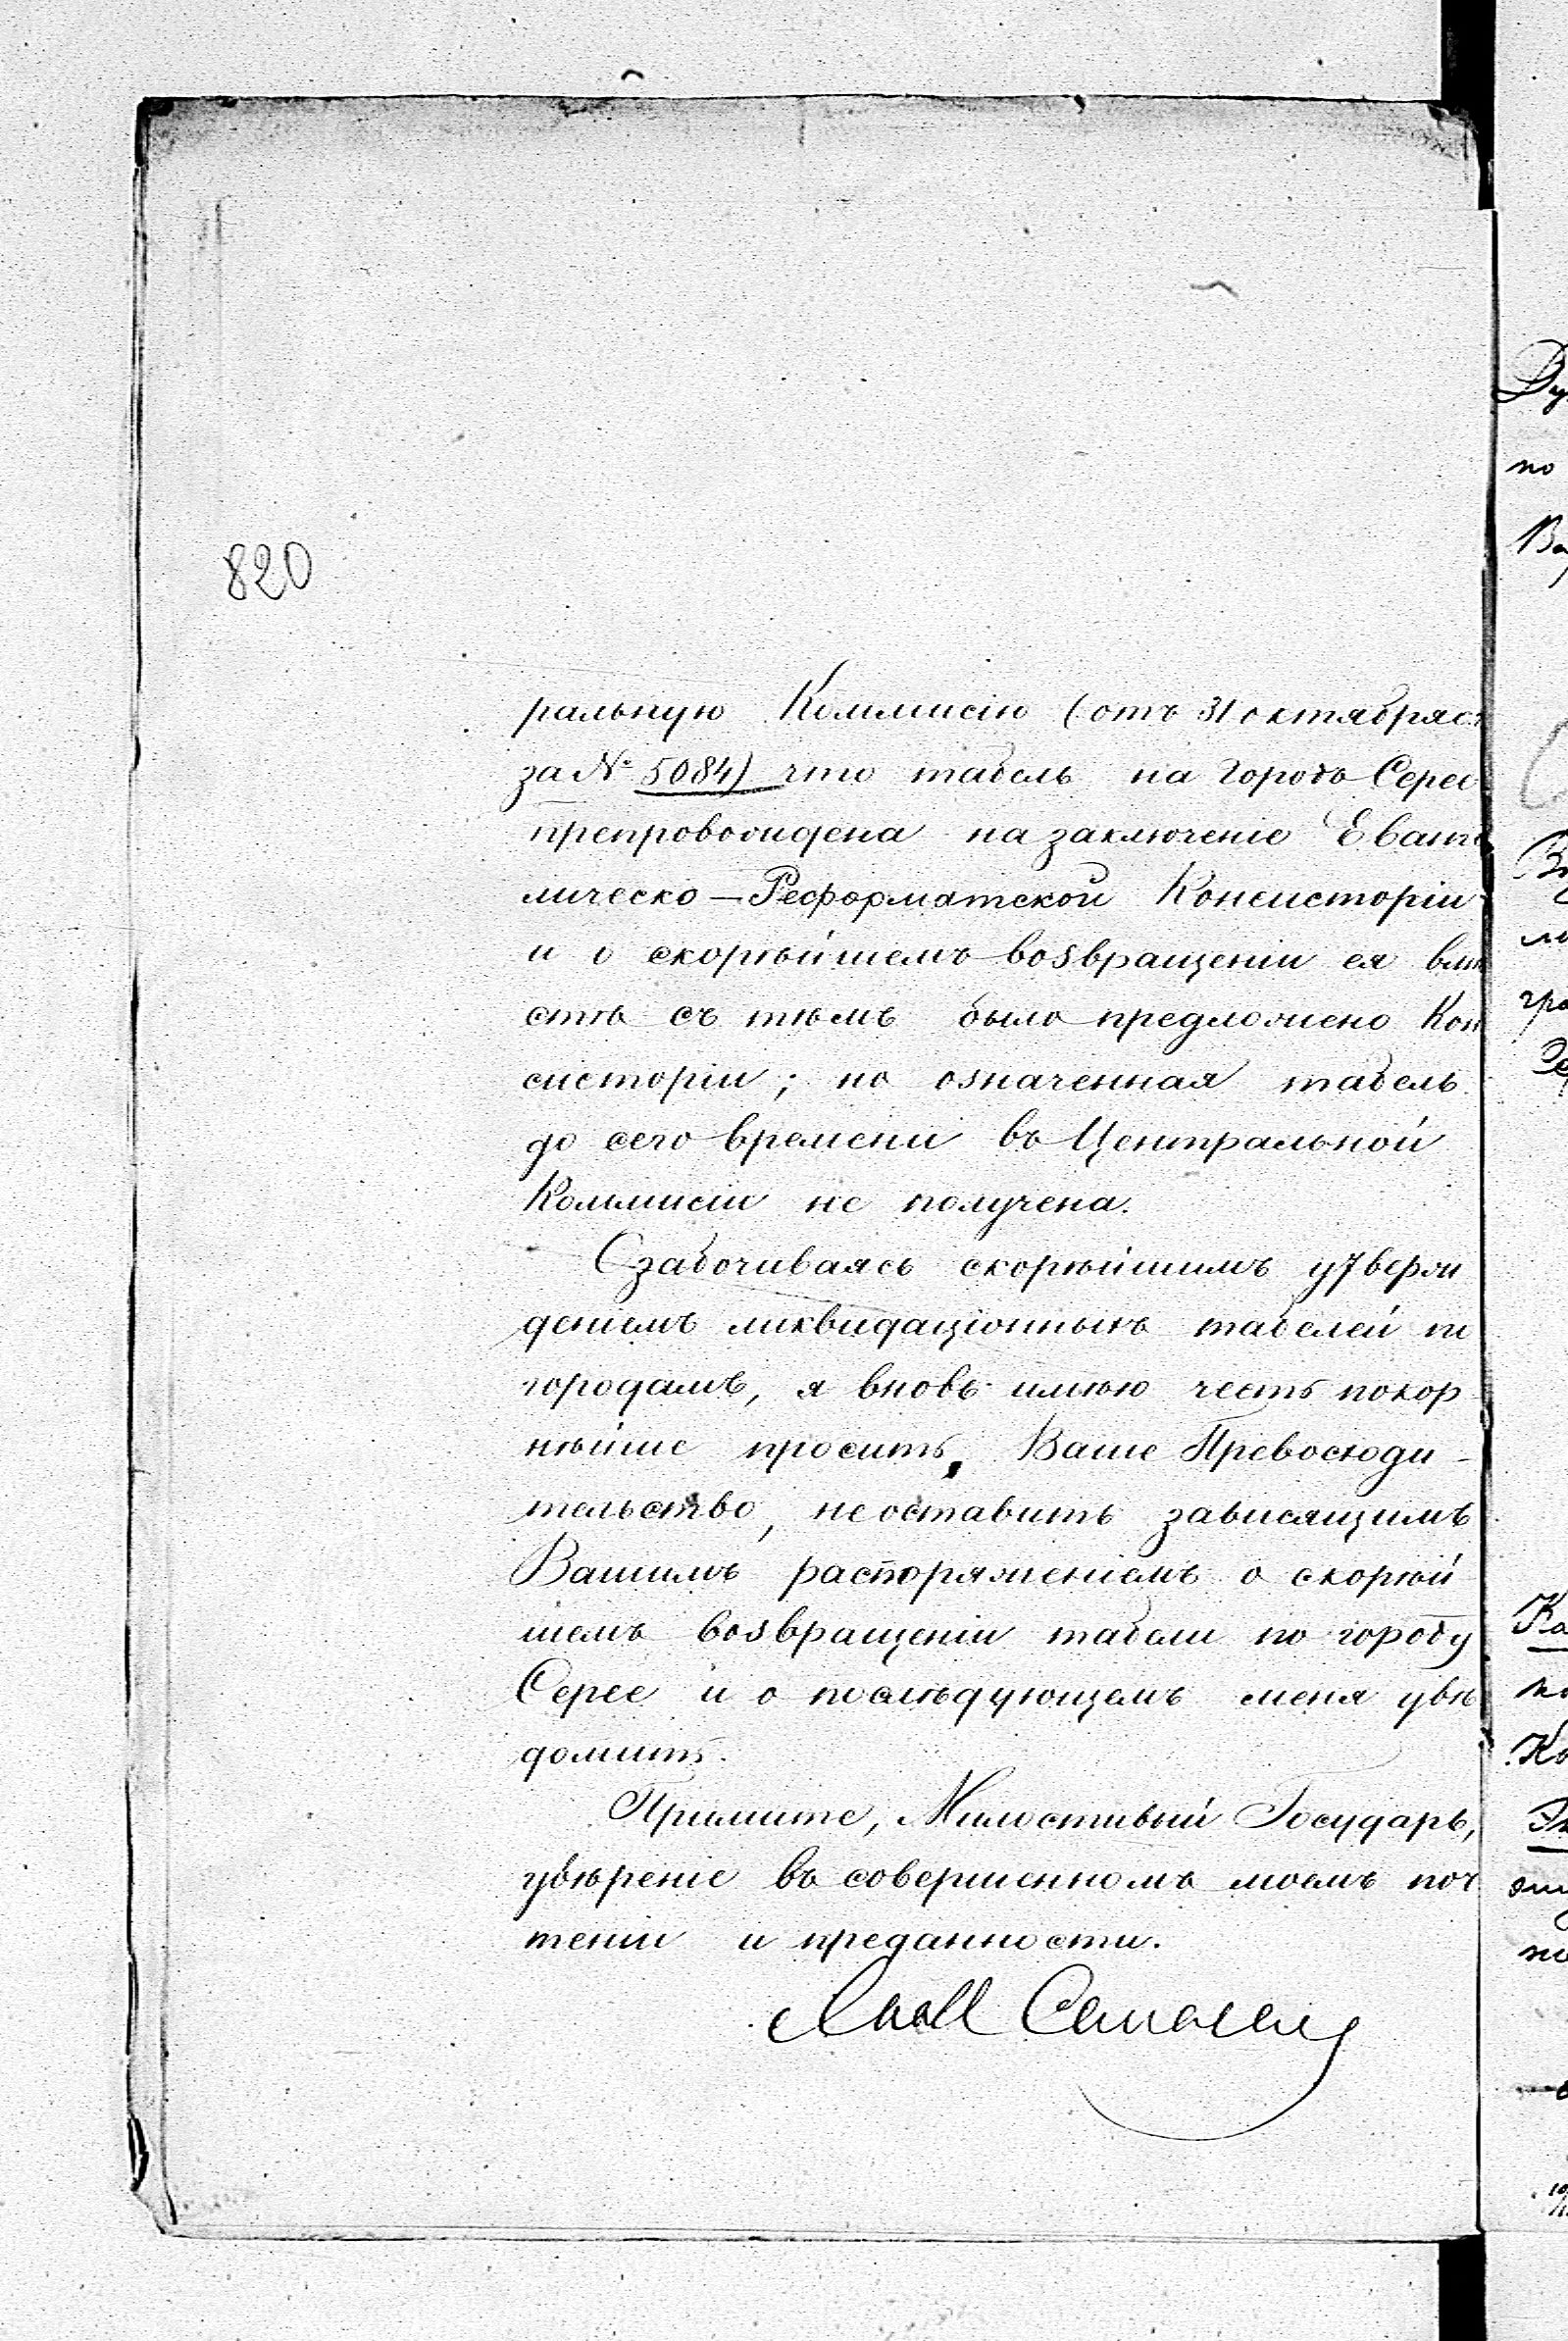 820
ральную Коммисію (отъ 31 октября с.
за № 5084) что табель на городъ Серее
препровождена на заключеніе Еванге
лическо-Реформатской Консисторіи
и о скорѣйшемъ возвращеніи ея вмѣ
стѣ съ тѣмъ было предложено Кон
систоріи; но означенная табель
до сего времени въ Центральной
Коммисіи не получена.
Озабочиваясь скорѣйшимъ утверж
деніемъ ликвидаціонныхъ табелей по
городамъ, я вновь имѣю честь покор
нѣйше просить, Ваше Превосходи-
тельство, не оставить зависящимъ
Вашимъ распоряженіемъ о скорѣй
шемъ возвращеніи табели по городу
Серее и о послѣдующемъ меня увѣ
домить.
Примите, Милостивый Государь,
увѣреніе въ совершенномъ моемъ поч
теніи и преданности.